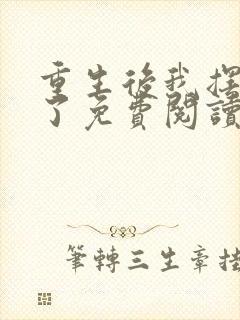 重生後我擺
了免費閱讀
筆轉三生章掛